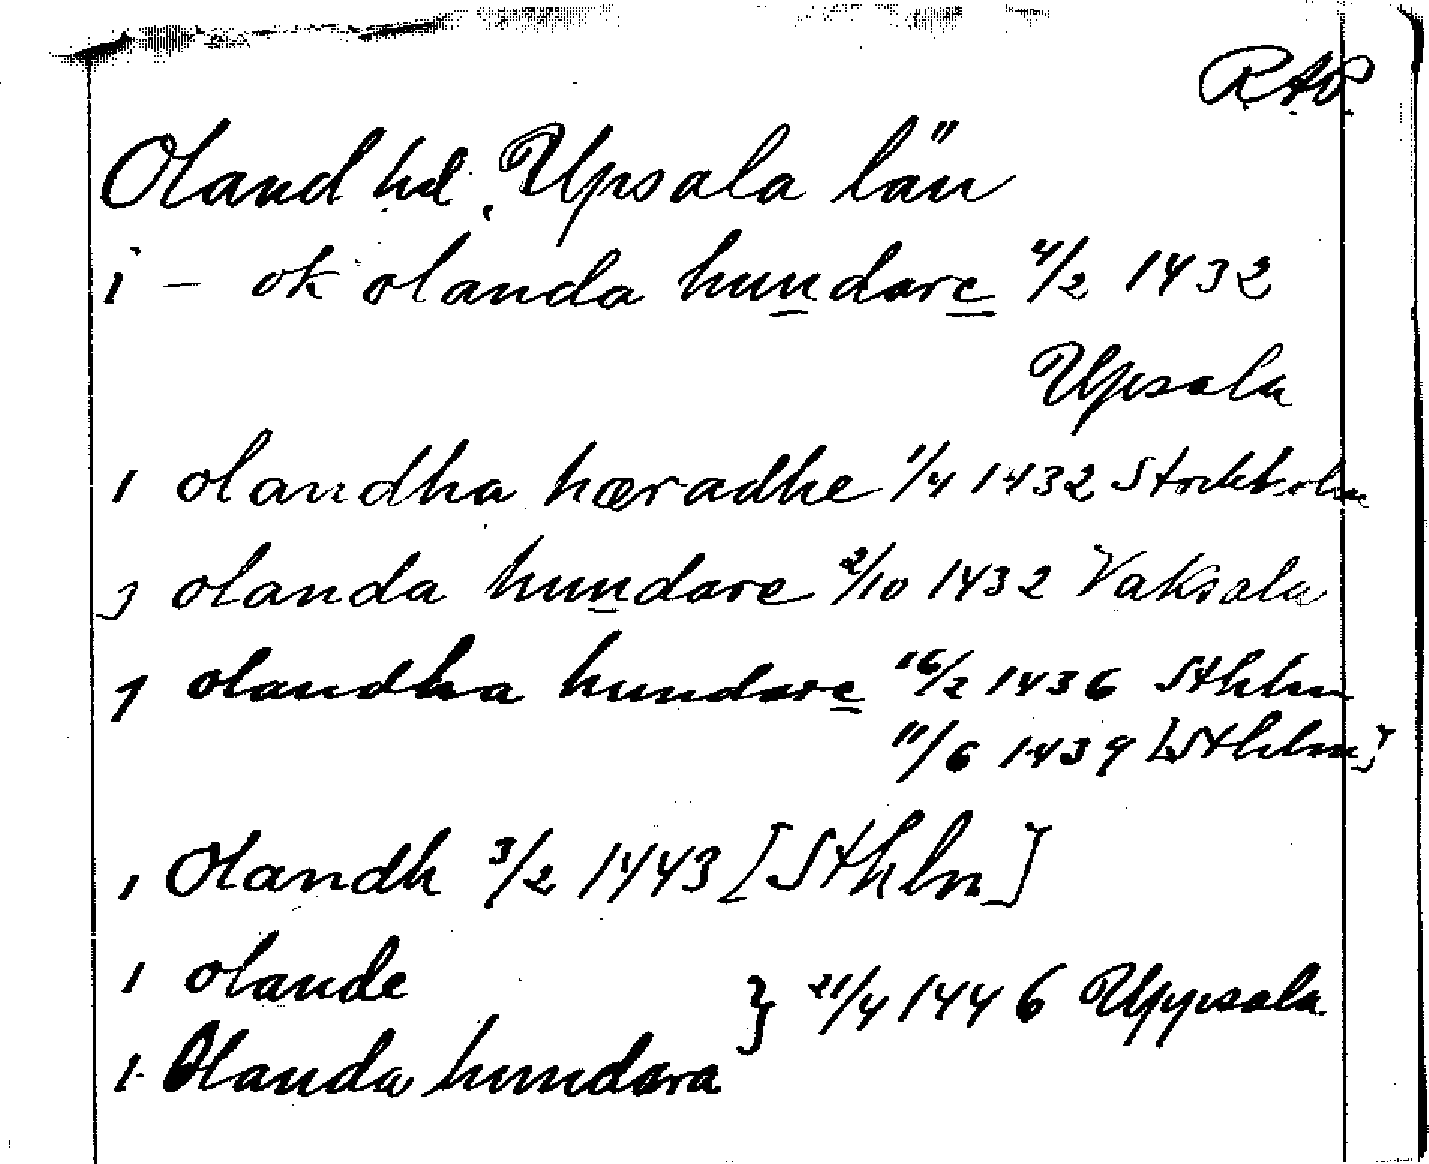 RAP.
Oland hd. Upsala län
i – ok olanda hundare 4/2 1432
Upsala
i olandha hæradhe 1/4 1432 Stockholm
j olanda hundare 2/10 1432 Vaksala
j olandha hundare 16/2 1436 Sthlm
11/6 1439 [Sthlm]
i Olandh 3/2 1443 [Sthlm]
i olande
i Olanda hundara } 21/4 1446 Uppsala